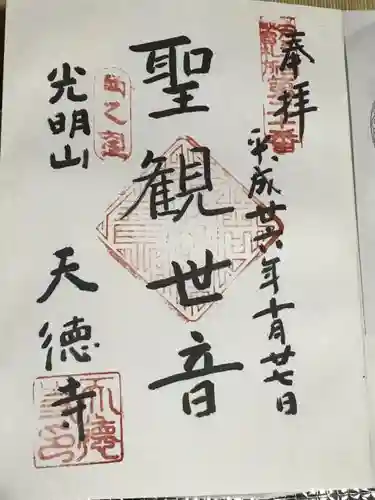 奉拝
平成廿六年十月廿七日
聖観世音
光明山
天徳寺